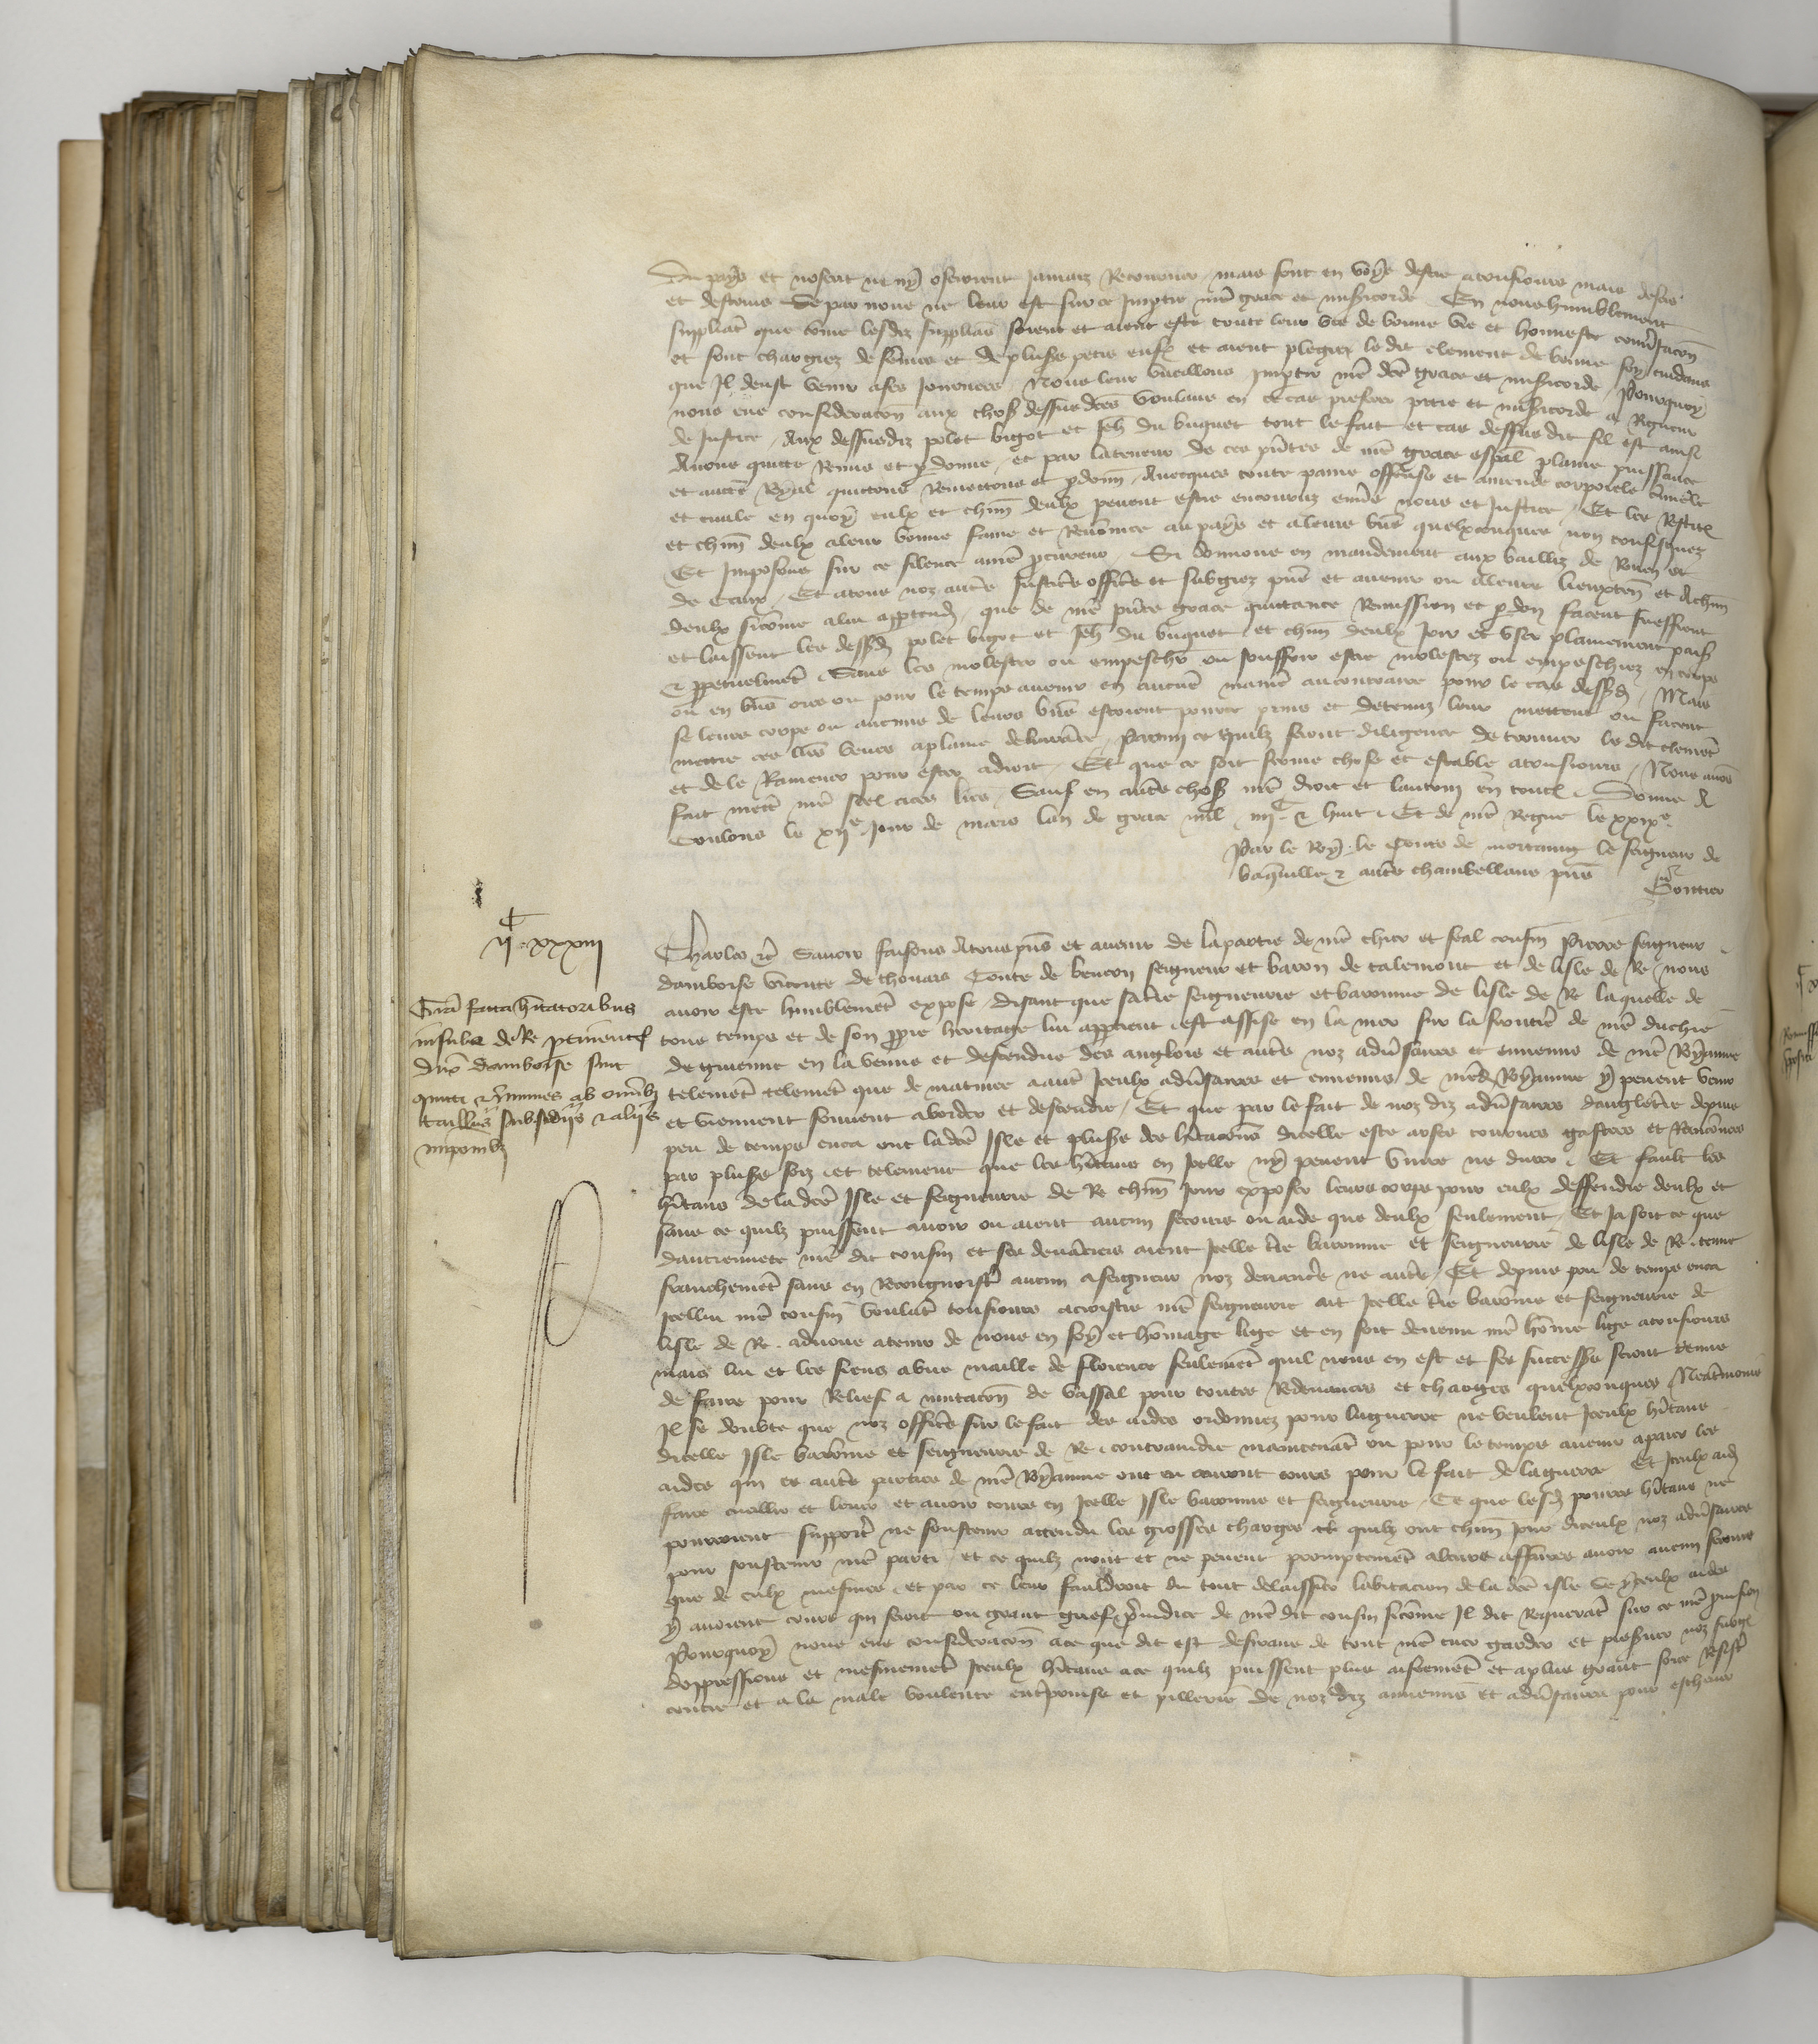 Du pays et noseroit ne ny oseroient jamais Retourner mais sont en voye destre a tousiours mais desers
et destruis Se par nous ne leur est sur ce impartie nr̄e grace et mis̄icorde En nous humblement
supliāt que cōme lesdiz suppliās soient et aient este toute leur vie de bonne vie et honneste conūsacōn
et sont chargiez de fēmes et de plus̄rs petis enfs et aient plegiez le dit clement de bonne foy cuidans
que Il deust venir a ses journees Nous leur vueillons impartir nr̄e dc̄e grace et mis̄icorde Pourquoy
nous eue consideracōn aux chos̄ dessusdc̄es voulans en ce cas preferer pitie et mis̄icorde a Rigueur
de justice Aux dessusdiz polet bigot et Jeh̄ du buquet tout le fait et cas dessus dit sil est ainsi
Avons quicte Remis et p̄donne et par la teneur de ces p̄ntes de nr̄e grace esp̄al plaine puissance
et auctē Royal quictons Remettons et p̄donn̄ Avecques toute paine offense et amende corporele crīmele
et civile en quoy eulx et chūn deulx pevent estre encouruz envs nous et justice Et les Restit
et chūn deulx a leur bonne fame et Renōmee au pays et a leurs biēs quelxconques non confisquez
Et Imposons sur ce silence a nr̄e p̄cureur Si donnons en mandement aux bailliz de Rouen et
de Caux Et a tous noz autr̄s justic̄s offic̄s et subgiez p̄ns et avenir ou a leurs lieuxten̄ et a chūn
deulx sicōme a lui app̄tend̄ que de nr̄e p̄nte grace quictance Remission et p̄don facent sueffrent
et laissent les dess̄d̄ polet bigot et Jeh̄ du buquet et chūn deulx joir et user plainement paisb
& p̄petuelmēt Sans les molester ou empeschr̄ ou souffrir estre molestez ou empeschiez en corps
ou en biēs ores ou pour le temps avenir en aucune maniē au contraire pour le cas dess̄d̄ Mais
se leurs corps ou aucuns de leurs biēs estoient pour ce prins et detenuz leur mettent ou facent
mettre ces lr̄es veues a plaine delivrāce Parmi ce quilz feront diligence de trouver le dit clemēt
et de le Ramener pour ester a droit Et que ce soit ferme chose et estable a tousiours Nous avōs
fait mettr̄ nr̄e seel a ces lr̄es Sauf en autr̄s chos̄ nr̄e droit et lautrui en toutes Donne A
Toulons le xij.e jour de mars lan de grace mil iiijC & huit Et de nr̄e Regne le xxixe.
Par le Roy le Conte de mortaing le seigneur de
baq̄ville & autr̄s chambellans p̄ns
Gontier
ijC xxxiij
Charles etc̄ Savoir faisons A tous p̄ns et avenir de la partie de nr̄e chier et feal cousin Pierre seigneur
damboise viconte de thouars Conte de benon seigneur et baron de talemont et de lisle de Re nous
avoir este humblemēt expose disant que sa tr̄e seigneurie et baronnie de lisle de Re laquelle de
tous temps et de son p̄pre heritage lui app̄tient est assise en la mer sur la frontiē de nr̄e duchie
de guienne en la venue et descendue des anglois et autr̄s noz adūsaires et ennemis de nr̄e Royaume
telemēt telemēt que de matinee a autr̄ Iceulx adūsaires et ennemis de nr̄ed̄ Royaume y pevent venir
et viennent souvent aborder et descendre Et que par le fait de noz diz adūsaires dangletr̄e depuis
peu de temps enca ont la dc̄e Isle et plus̄rs des hītacōns dicelle este arses courues gastees et Rancōnees
par plus̄rs foiz et telement que les hītans en Icelle ny pevent vivre ne durer Et fault les
hītans de la dc̄e Isle et seigneurie de Re chūn jour exposer leurs corps pour eulx deffendre deulx et
sans ce quilz puissent avoir ou aient aucun secours ou aide que deulx seulement Et ja soit ce que
danciennete nr̄e dit cousin et ses devāciers aient Icelle tr̄e baronnie et seigneurie de lisle de Re tenue
franchemēt sans en Recongnoistr̄ aucun a seigneur noz devanc̄s ne autr̄s Et depuis pou de temps enca
Icellui nr̄e cousin voulāt tousiours acroistre nr̄e seigneurie ait Icelle tr̄e barōnie et seigneurie de
lisle de Re advoue a tenir de nous en foy et hōmage lige et en soit devenu nr̄e hōme lige a tousiours
mais lui et les siens a une maille de florence seulemēt quil nous en est et ses successrs seront tenus
de faire pour Relief a mutacōn de vassal pour toutes Redevances et charges quelxconques Neātmoins
Il se doubte que noz offic̄s sur le fait des aides ordonnez pour la guerre ne veulent Iceulx hītans
dicelle Isle barōnie et seigneurie de Re contraindre maintenāt ou pour le temps avenir a paier les
aides qui es autr̄s parties de nr̄e Royaume ont ou auront cours pour le fait de la guerre Et Iceulx aid̄
faire cueillir et lever et avoir cours en Icelle Isle baronnie et seigneurie Ce que lesd̄ povres hītans ne
pourroient supportr̄ ne soustenir attendu les grosses charges quilz ont chūn jour diceulx noz adūsaires
pour soustenir nr̄e parti et ce quilz nont et ne pevent promptemēt a leurs affaires avoir aucun secours
que de eulx mesmes et par ce leur fauldroit du tout delaissier labitacion de la dc̄e isle se yceulx aides
y avoient cours qui seroit ou grant grief p̄iudice de nr̄e dit cousin sicōme Il dit Requerāt sur ce nr̄e p̄vision
Pourquoy nous eue consideracōn a ce que dit est desirans de tout nr̄e cuer garder et pres̄ver noz subgiez
doppressions et mesmemēt Iceulx hītans a ce quilz puissent plus aisiemēt et a plus grant force Resistr̄
contre et a la male voulente ent̄prinse et pillerie de noz diz ennemis et adūsaires pour eschever
Grā facta hītatoribus
insule de Re p̄tinentis
dn̄o damboise sint
quitti & īmunes ab omīb
talliis subsidiis & aliis
imposīb